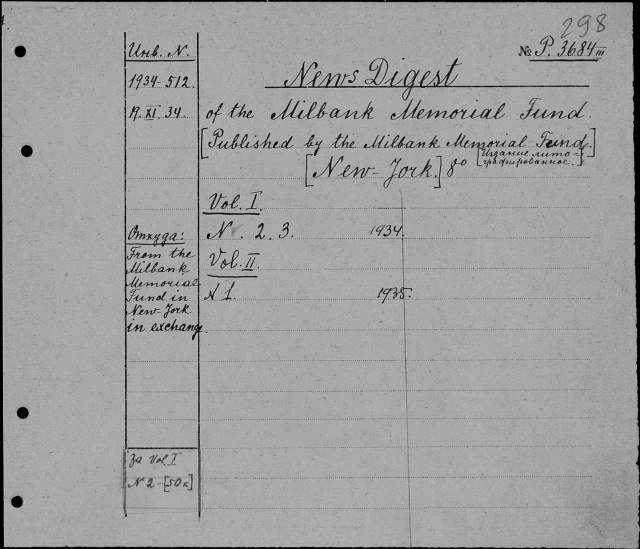 298
Инв. N.
№ P. 3684 III
1934-512.
News Digest
19.XI.34.
of the Milbank Memorial Fund.
[Published by the Milbank Memorial Fund.]
[New-York.] 8º [Издание лито-
графированное.]
Vol. I.
Откуда:
N 2. 3. 1934.
From the
Milbank
Memorial
Fund in
New-York
in exchange.
Vol. II.
N 1. 1935.
За Vol. I
N 2 - [50 к]